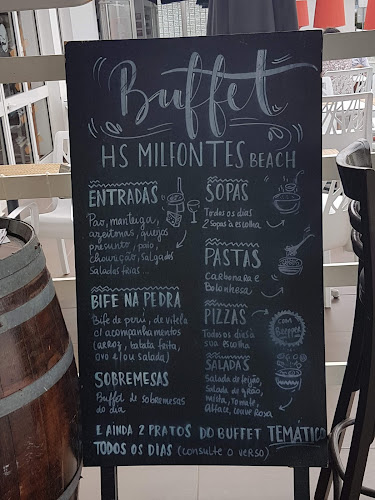 Buffet
HS MILFONTES BEACH
ENTRADAS
Pão, manteiga,
azeitonas, queijos
presunto, paio,
chourição, Salgados
Saladas frias...
BIFE NA PEDRA
Bife de perú, de vitela
c/ acompanhamentos
(arroz, batata frita,
ovo e/ou salada)
SOBREMESAS
Buffet de sobremesas
do dia
SOPAS
Todos os dias
2 Sopas à escolha
PASTAS
Carbonara e
Bolonhesa
PIZZAS
Todos os dias à
sua Escolha
SALADAS
Salada de feijão,
Salada de grão,
mista, Tomate,
Alface, couve Roxa
E AINDA 2 PRATOS DO BUFFET TEMÁTICO
TODOS OS DIAS (consulte o verso)